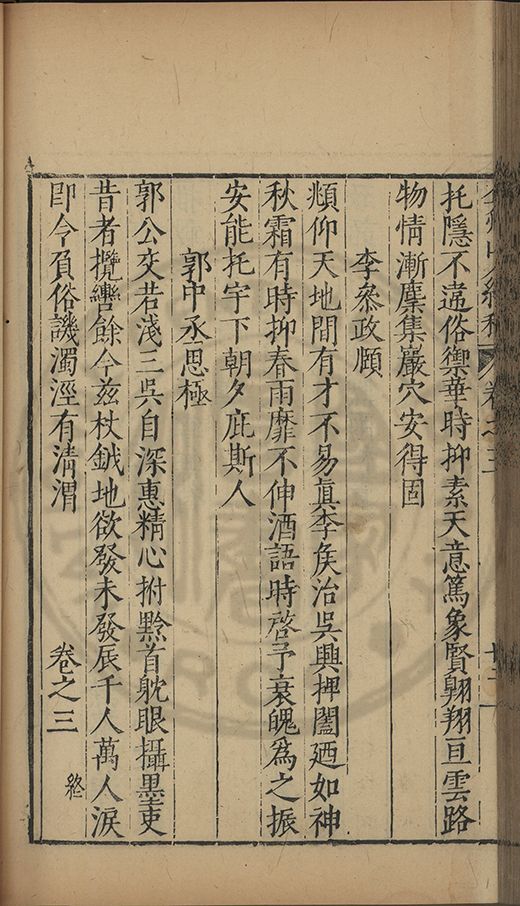 托隱不違俗禦華時抑素天意篤象賢翺翔亘雲路
物情漸麋集巖穴安得固
李叅政頤
頫仰天地間有才不易真李矦治吳興捭闔廼如神
秋霜有時抑春雨靡不伸酒語時啓予衰醜爲之振
安能托宇下朝夕庇斯人
郭中丞思極
郭公交若淺三吳自深惠精心拊黔首躭眼攝墨吏
昔者攬轡餘今兹杖鉞地欲發未發辰千人萬人淚
即今負俗譏濁涇有清渭
卷之三
終